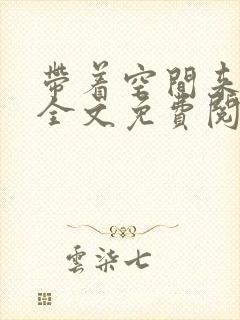 帶着空間来
全文免費閱
雲柒七